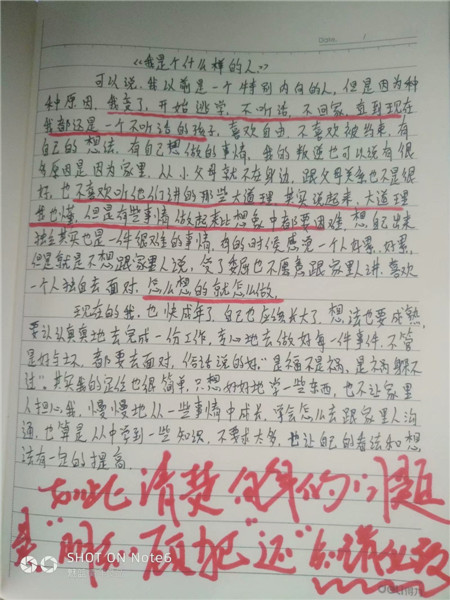 Date. /
《我是个什么样的人》
可以说，我以前是一个特别内向的人，但是因为种
种原因，我变了，开始逃学，不听话，不回家，直到现在
我都还是一个不听话的孩子，喜欢自由，不喜欢被约束，有
自己的想法，有自己想做的事情，我的叛逆也可以说有很
多原因是因为家里，从小父母就不在身边，跟父母关系也不是很
好，也不喜欢听他们讲的那些大道理，其实说起来，大道理
我也懂，但是有些事情做起来比想象中都要困难，想自己出来
独立其实也是一件很难的事情，有的时候感觉一个人好累，好累，
但是就是不想跟家里人说，受了委屈也不愿意跟家里人讲，喜欢
一个人独自去面对，怎么想的就怎么做。
现在的我，也快成年了，自己也应该长大了，想法也要成熟，
要认认真真地去完成一份工作，专心地去做好每一件事件，不管
是好与坏，都要去面对，俗话说的好"是福不是祸，是祸躲不
过"，其实我的定位也很简单，想好好地学一些东西，也不让家里
人担心我，慢慢地从一些事情中成长，学会怎么去跟家里人沟
通，也算是从中学到一些知识，不要求太多，也让自己的看法和想
法有一定的提高。
如此清楚自身的问题
SHOT ON Note6